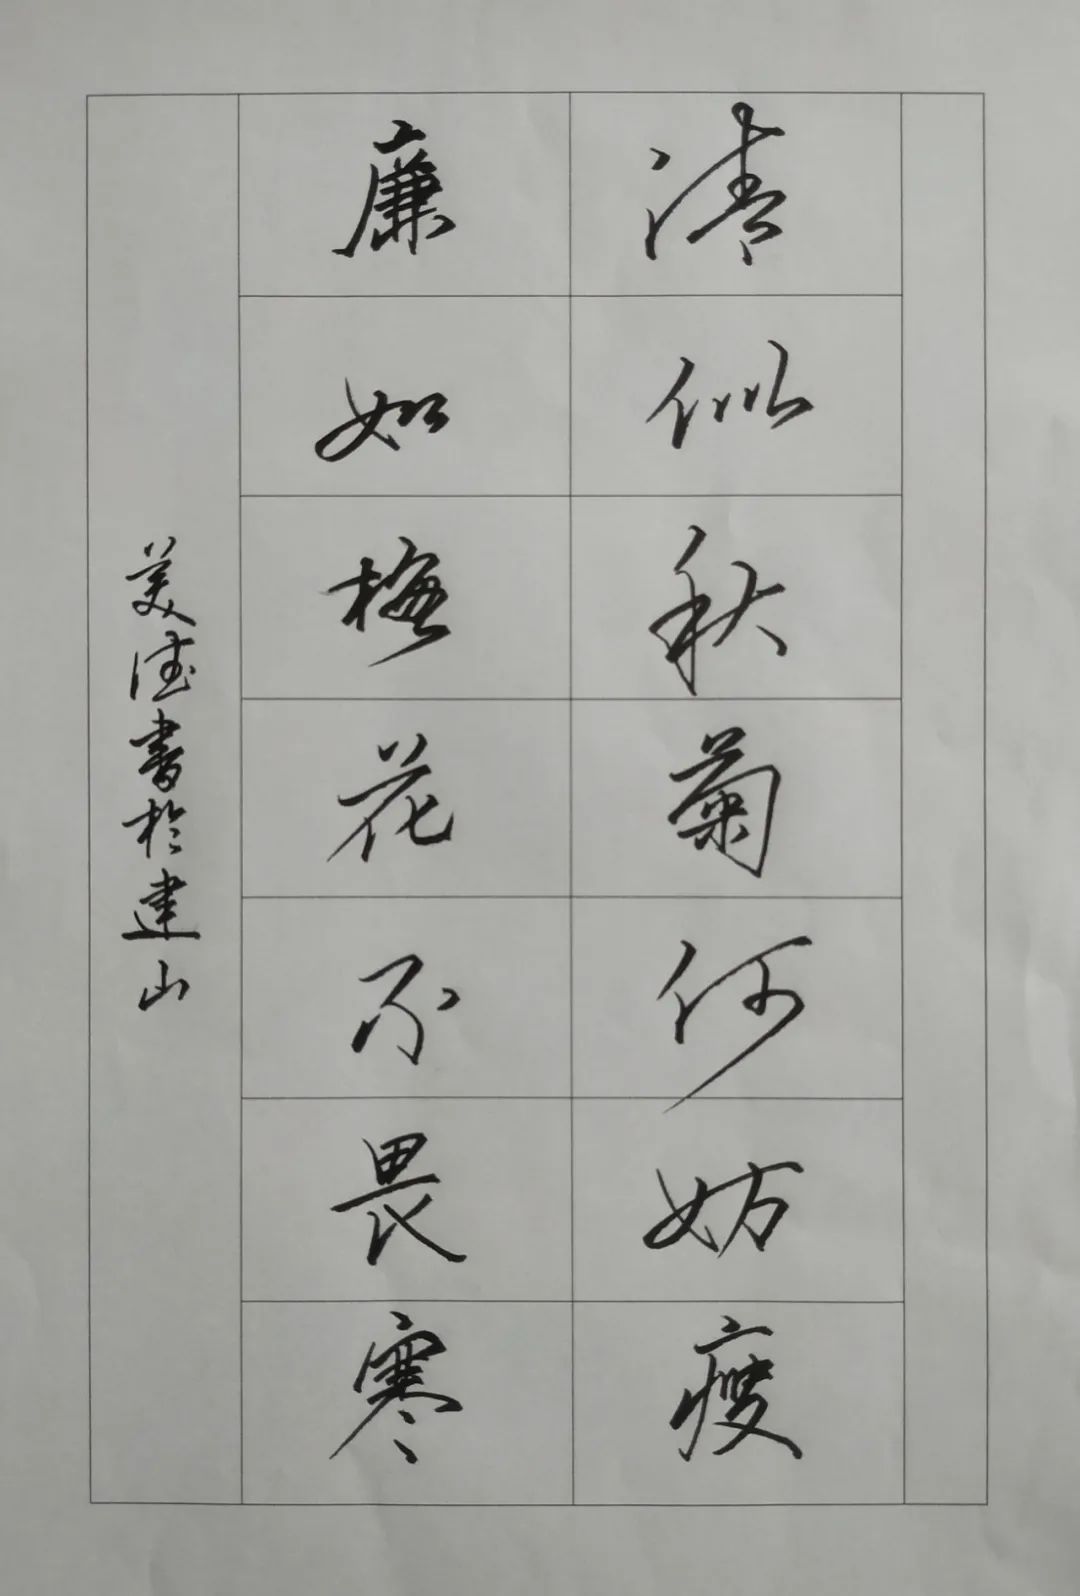 清似秋菊何妨瘦
廉如梅花不畏寒
美清書於建山